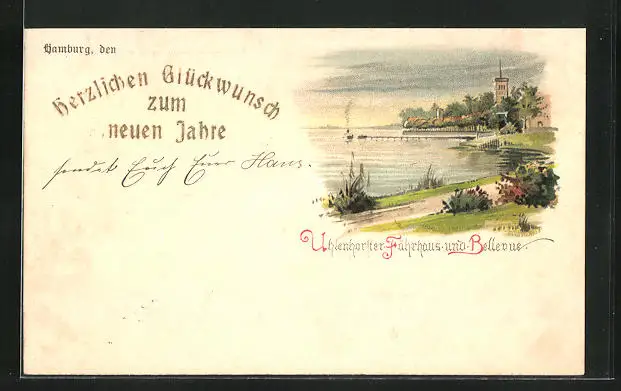 Hamburg, den
Herzlichen Glückwunsch
zum
neuen Jahre
sendet Euch Euer Hans.
Uhlenhorster Fährhaus und Bellevue